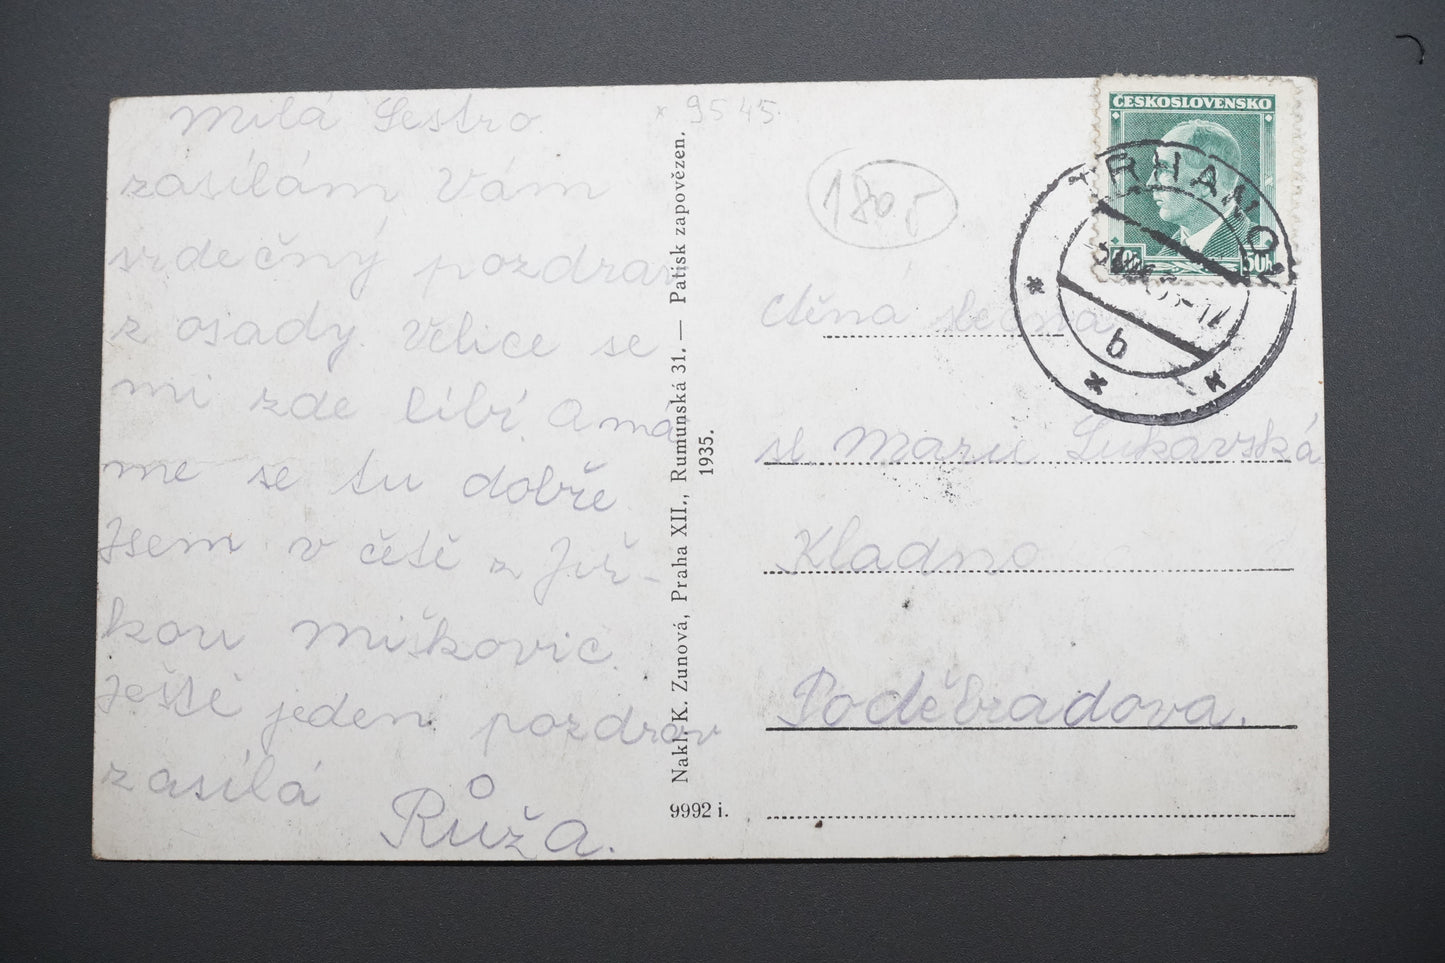 Milá Sestro.
zasílám Vám
srdečný pozdrav
z osady. Velice se
mi zde líbí. A má
me se tu dobře.
Jsem v četě z Jiř-
kou Miškovic.
Ještě jeden pozdrav
zasílá
Růža.
× 9545.
Nakl. K. Zunová, Praha XII., Rumunská 31. — Patisk zapovězen.
1935.
9992 i.
1805
ČESKOSLOVENSKO
50h
TRHANOV
b
Ctěná slečna
sl. Maru Lukavská
Kladno
Poděbradova.